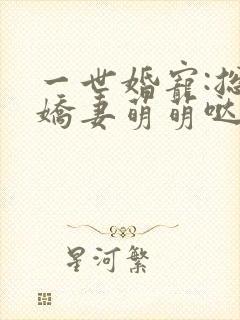 一世婚寵:
嬌妻萌萌哒
星河繁